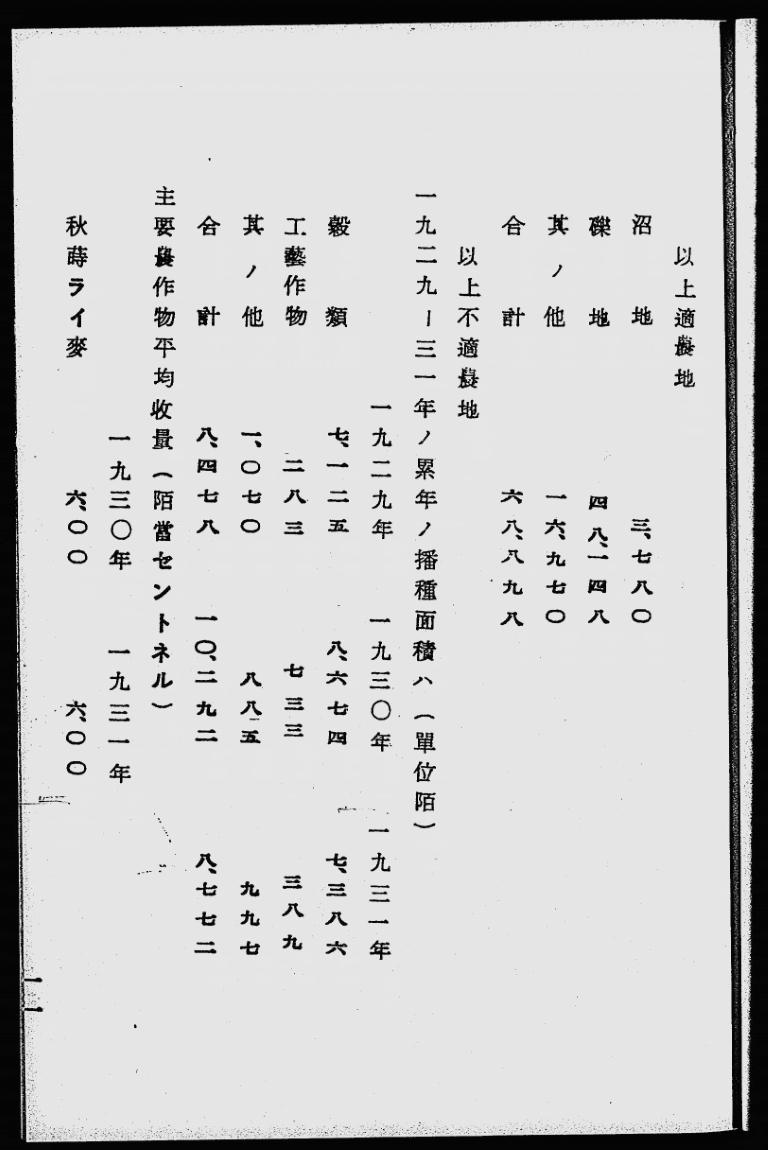 以上適農地
沼地 三、七八〇
礫地 四八、一四八
其ノ他 一六、九七〇
合計 六八、八九八
以上不適農地
一九二九ー三一年ノ累年ノ播種面積ハ（單位陌）
一九二九年 一九三〇年 一九三一年
穀類 七、一二五 八、六七四 七、三八六
工藝作物 二八三 七三三 三八九
其ノ他 一、〇七〇 八八五 九九七
合計 八、四七八 一〇、二九二 八、七七二
主要農作物平均收量（陌當セントネル）
一九三〇年 一九三一年
秋蒔ライ麥 六、〇〇 六、〇〇
一一